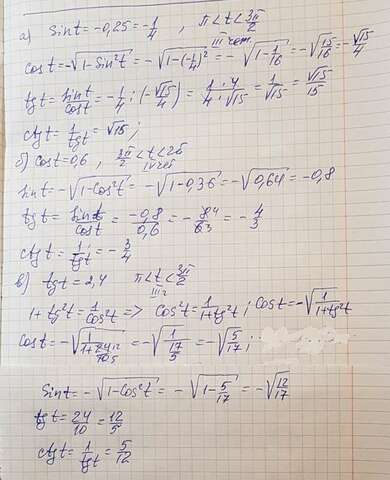 а) sint = -0,25 = -1/4 , π < t < 3π/2
III чет.
cost = -√(1-sin²t) = -√(1-(-1/4)²) = -√(1-1/16) = -√(15/16) = -√15/4
tgt = sint/cost = -1/4 : (-√15/4) = 1·4/4·√15 = 1/√15 = √15/15
ctgt = 1/tgt = √15;
б) cost = 0,6 , 3π/2 < t < 2π
sint = -√(1-cos²t) = -√(1-0,36) = -√0,64 = -0,8
tgt = sint/cost = -0,8/0,6 = -8 4/6 3 = -4/3
ctgt = 1/tgt = -3/4
в) tgt = 2,4 π < t < 3π/2
1+tg²t = 1/cos²t => cos²t = 1/1+tg²t ; cost = -√(1/1+tg²t)
cost = -√(1/1+24 12/10 5) = -√(1/17/5) = -√(5/17) ;
sint = -√(1-cos²t) = -√(1-5/17) = -√(12/17)
tgt = 24/10 = 12/5
ctgt = 1/tgt = 5/12